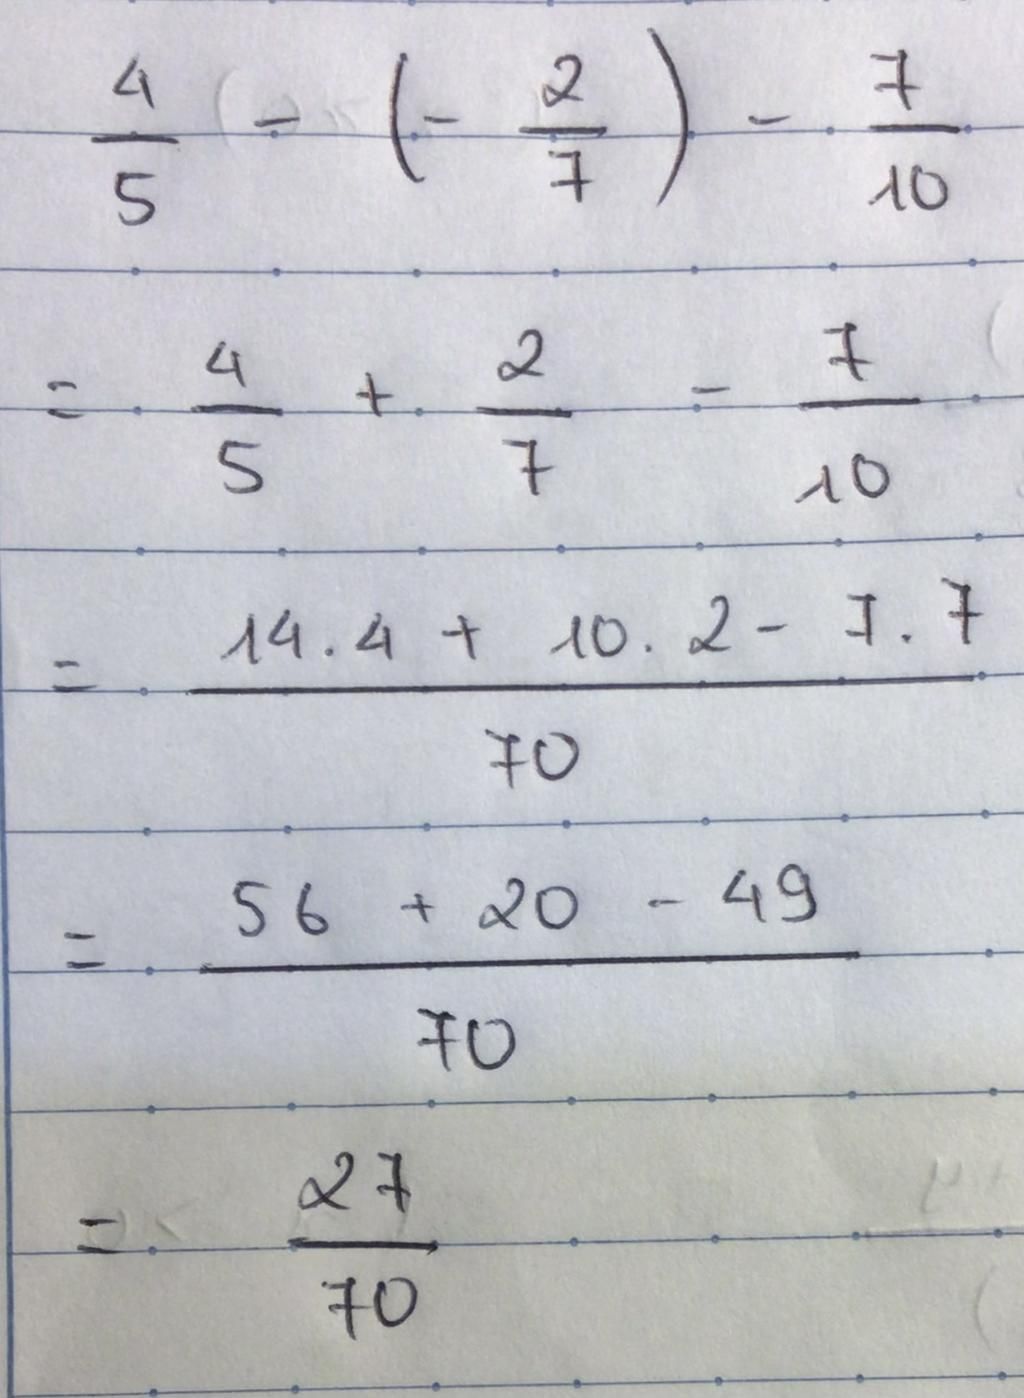 4/5 - (- 2/7) - 7/10
= 4/5 + 2/7 - 7/10
= (14.4 + 10.2 - 7.7)/70
= (56 + 20 - 49)/70
= 27/70